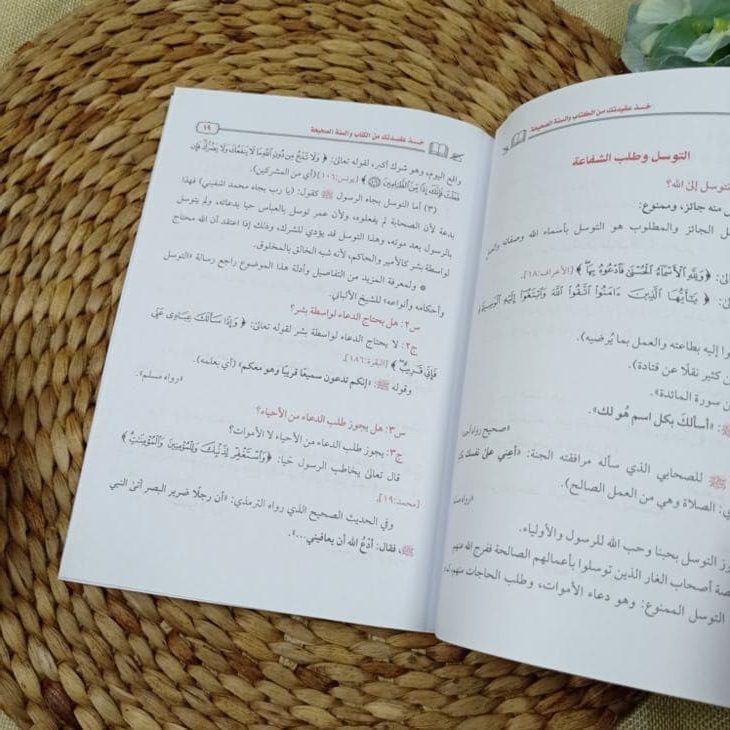 خذ عقيدتك من الكتاب والسنة الصحيحة
التوسل وطلب الشفاعة
توسل إلى الله؟
منه جائز، وممنوع:
ل الجائز والمطلوب هو التوسل بأسماء الله وصفاته
﴿وَلِلَّهِ الْأَسْمَاءُ الْحُسْنَىٰ فَادْعُوهُ بِهَا﴾ [الأعراف:١٨].
﴿يَا أَيُّهَا الَّذِينَ ءَامَنُوا اتَّقُوا اللَّهَ وَابْتَغُوا إِلَيْهِ الْوَسِيلَةَ
وا إليه بطاعته والعمل بما يُرضيه).
كثير نقلًا عن قتادة).
سورة المائدة».
ﷺ: «أسألك بكل اسم هُو لك».
«صحيح رواه
ﷺ للصحابي الذي سأله مرافقته الجنة: «أعِنِّي على نفسك
ي: الصلاة وهي من العمل الصالح).
«رواه
وز التوسل بحبنا وحب الله للرسول والأولياء.
صة أصحاب الغار الذين توسلوا بأعمالهم الصالحة ففرج الله عنهم
التوسل الممنوع: وهو دعاء الأموات، وطلب الحاجات منهم
خذ عقيدتك من الكتاب والسنة الصحيحة
١٩
واقع اليوم، وهو شرك أكبر، لقوله تعالى: ﴿وَلَا تَدْعُ مِن دُونِ اللَّهِ مَا لَا يَنفَعُكَ وَلَا يَضُرُّكَ فَإِن
فَعَلْتَ فَإِنَّكَ إِذًا مِّنَ الظَّالِمِينَ﴾ [يونس:١٠٦] (أي من المشركين).
(٣) أما التوسل بجاه الرسول ﷺ كقول: (يا رب بجاه محمد اشفيني) فهذا
بدعة لأن الصحابة لم يفعلوه، ولأن عمر توسل بالعباس حيا بدعائه، ولم يتوسل
بالرسول بعد موته، وهذا التوسل قد يؤدي للشرك، وذلك إذا اعتقد أن الله محتاج
لواسطة بشر كالأمير والحاكم، لأنه شبه الخالق بالمخلوق.
* ولمعرفة المزيد من التفاصيل وأدلة هذا الموضوع راجع رسالة «التوسل
وأحكامه وأنواعه» للشيخ الألباني.
س٢: هل يحتاج الدعاء لواسطة بشر؟
ج٢: لا يحتاج الدعاء لواسطة بشر لقوله تعالى: ﴿وَإِذَا سَأَلَكَ عِبَادِي عَنِّي
فَإِنِّي قَرِيبٌ﴾ [البقرة:١٨٦].
وقوله ﷺ: «إنكم تدعون سميعًا قريبًا وهو معكم» (أي بعلمه).
«رواه مسلم».
س٣: هل يجوز طلب الدعاء من الأحياء؟
ج٣: يجوز طلب الدعاء من الأحياء لا الأموات؟
قال تعالى يخاطب الرسول حَيا: ﴿وَاسْتَغْفِرْ لِذَنبِكَ وَلِلْمُؤْمِنِينَ وَالْمُؤْمِنَاتِ﴾
[محمد:١٩].
وفي الحديث الصحيح الذي رواه الترمذي: «أن رجلًا ضرير البصر أتى النبي
ﷺ، فقال: ادْعُ الله أن يعافيني...».